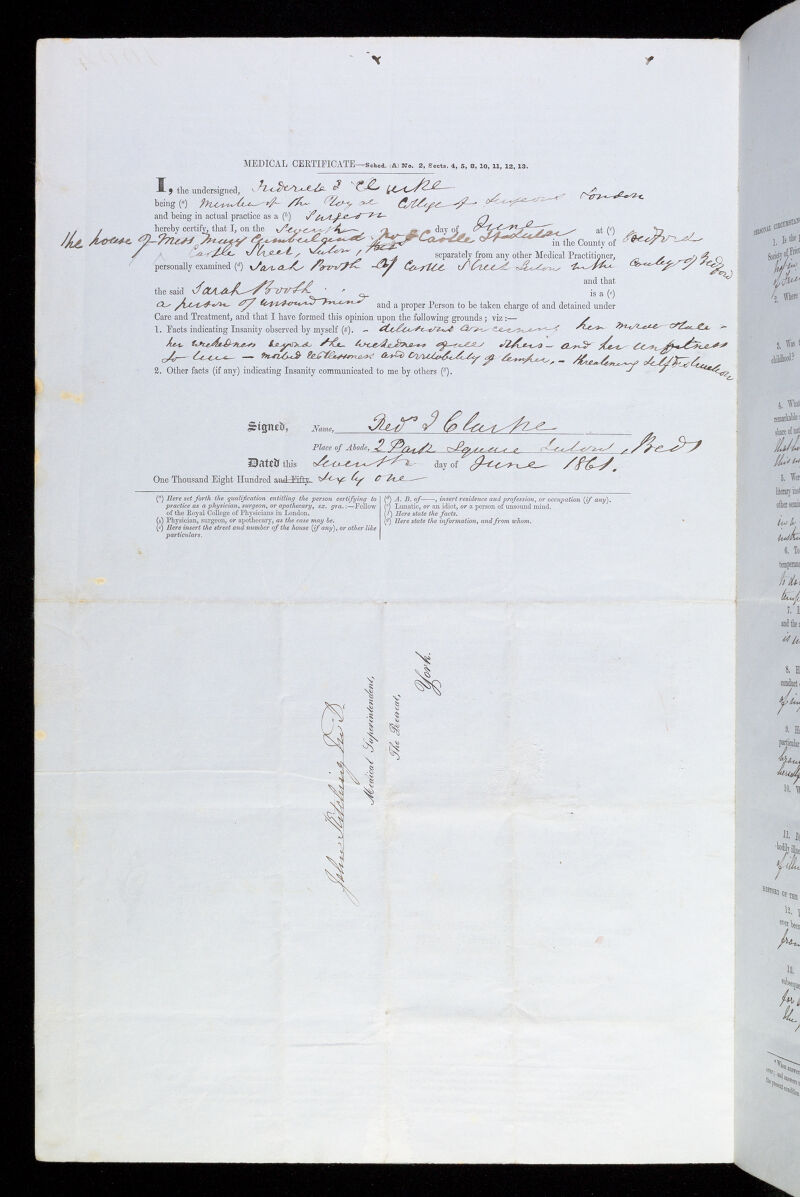 MEDICAL CERTIFICATE—Sched. (A) No. 2, Sects. 4, 5, 8, 10, 11, 12, 13.
I, the undersigned, Frederick J Clarke
being (a) Member of the Royal College of Surgeons London
and being in actual practice as a (b) Surgeon
hereby certify, that I, on the Seventh day of June at (c)
the house of Miss Mary Cumberland Castle St Luton in the County of Bedford
Castle Street, Luton, Beds separately from any other Medical Practitioner,
personally examined (d) Sarah Booth of Castle Street Luton in the County of Bedford
and that
the said Sarah Booth is a (e)
a person of unsound mind and a proper Person to be taken charge of and detained under
Care and Treatment, and that I have formed this opinion upon the following grounds; viz:—
1. Facts indicating Insanity observed by myself (f). - delusions concerning her moral state -
her wickedness beyond the wickedness of all others - and her unfitness
to live - morbid restlessness and irritability of temper, - threatening self destruction
2. Other facts (if any) indicating Insanity communicated to me by others (g).
Signed, Name, Fredk J Clarke
Place of Abode, 2 Park Square Luton, Beds
Dated this Seventh day of June 1861.
One Thousand Eight Hundred and Fifty Sixty one
(a) Here set forth the qualification entitling the person certifying to
practice as a physician, surgeon, or apothecary, ex. gra.:—Fellow
of the Royal College of Physicians in London.
(b) Physician, surgeon, or apothecary, as the case may be.
(c) Here insert the street and number of the house (if any), or other like
particulars.
(d) A. B. of——, insert residence and profession, or occupation (if any).
(e) Lunatic, or an idiot, or a person of unsound mind.
(f) Here state the facts.
(g) Here state the information, and from whom.
John Kitching M.D.
Medical Superintendent,
The Retreat,
York.